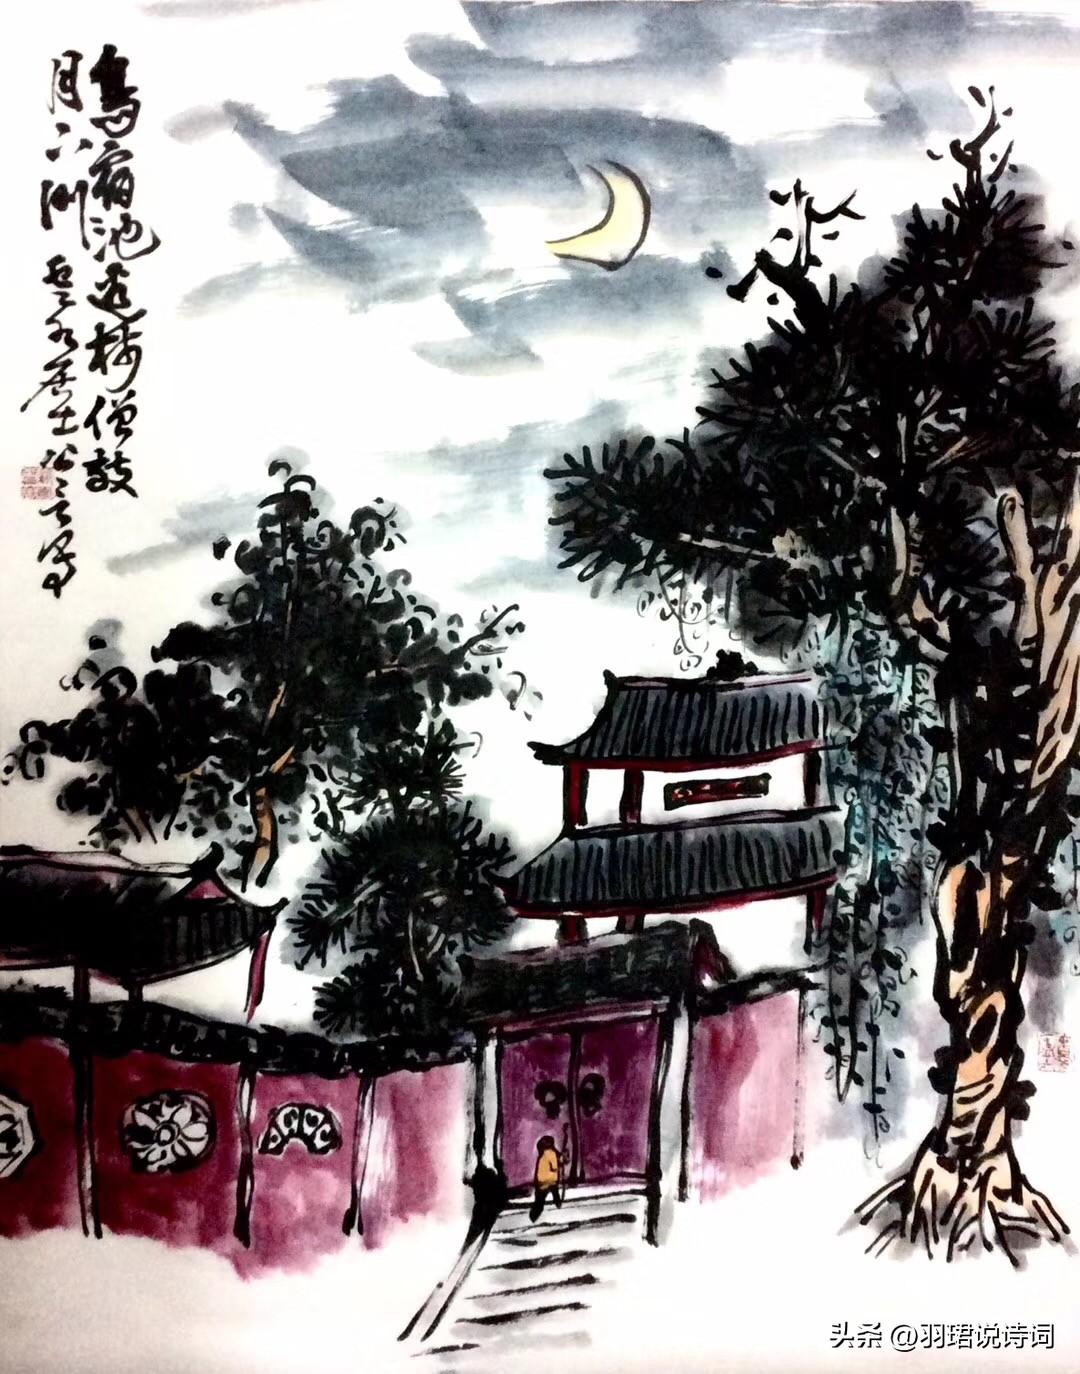 鳥宿池边树僧敲
月下门 居士
头条 @羽珺说诗词